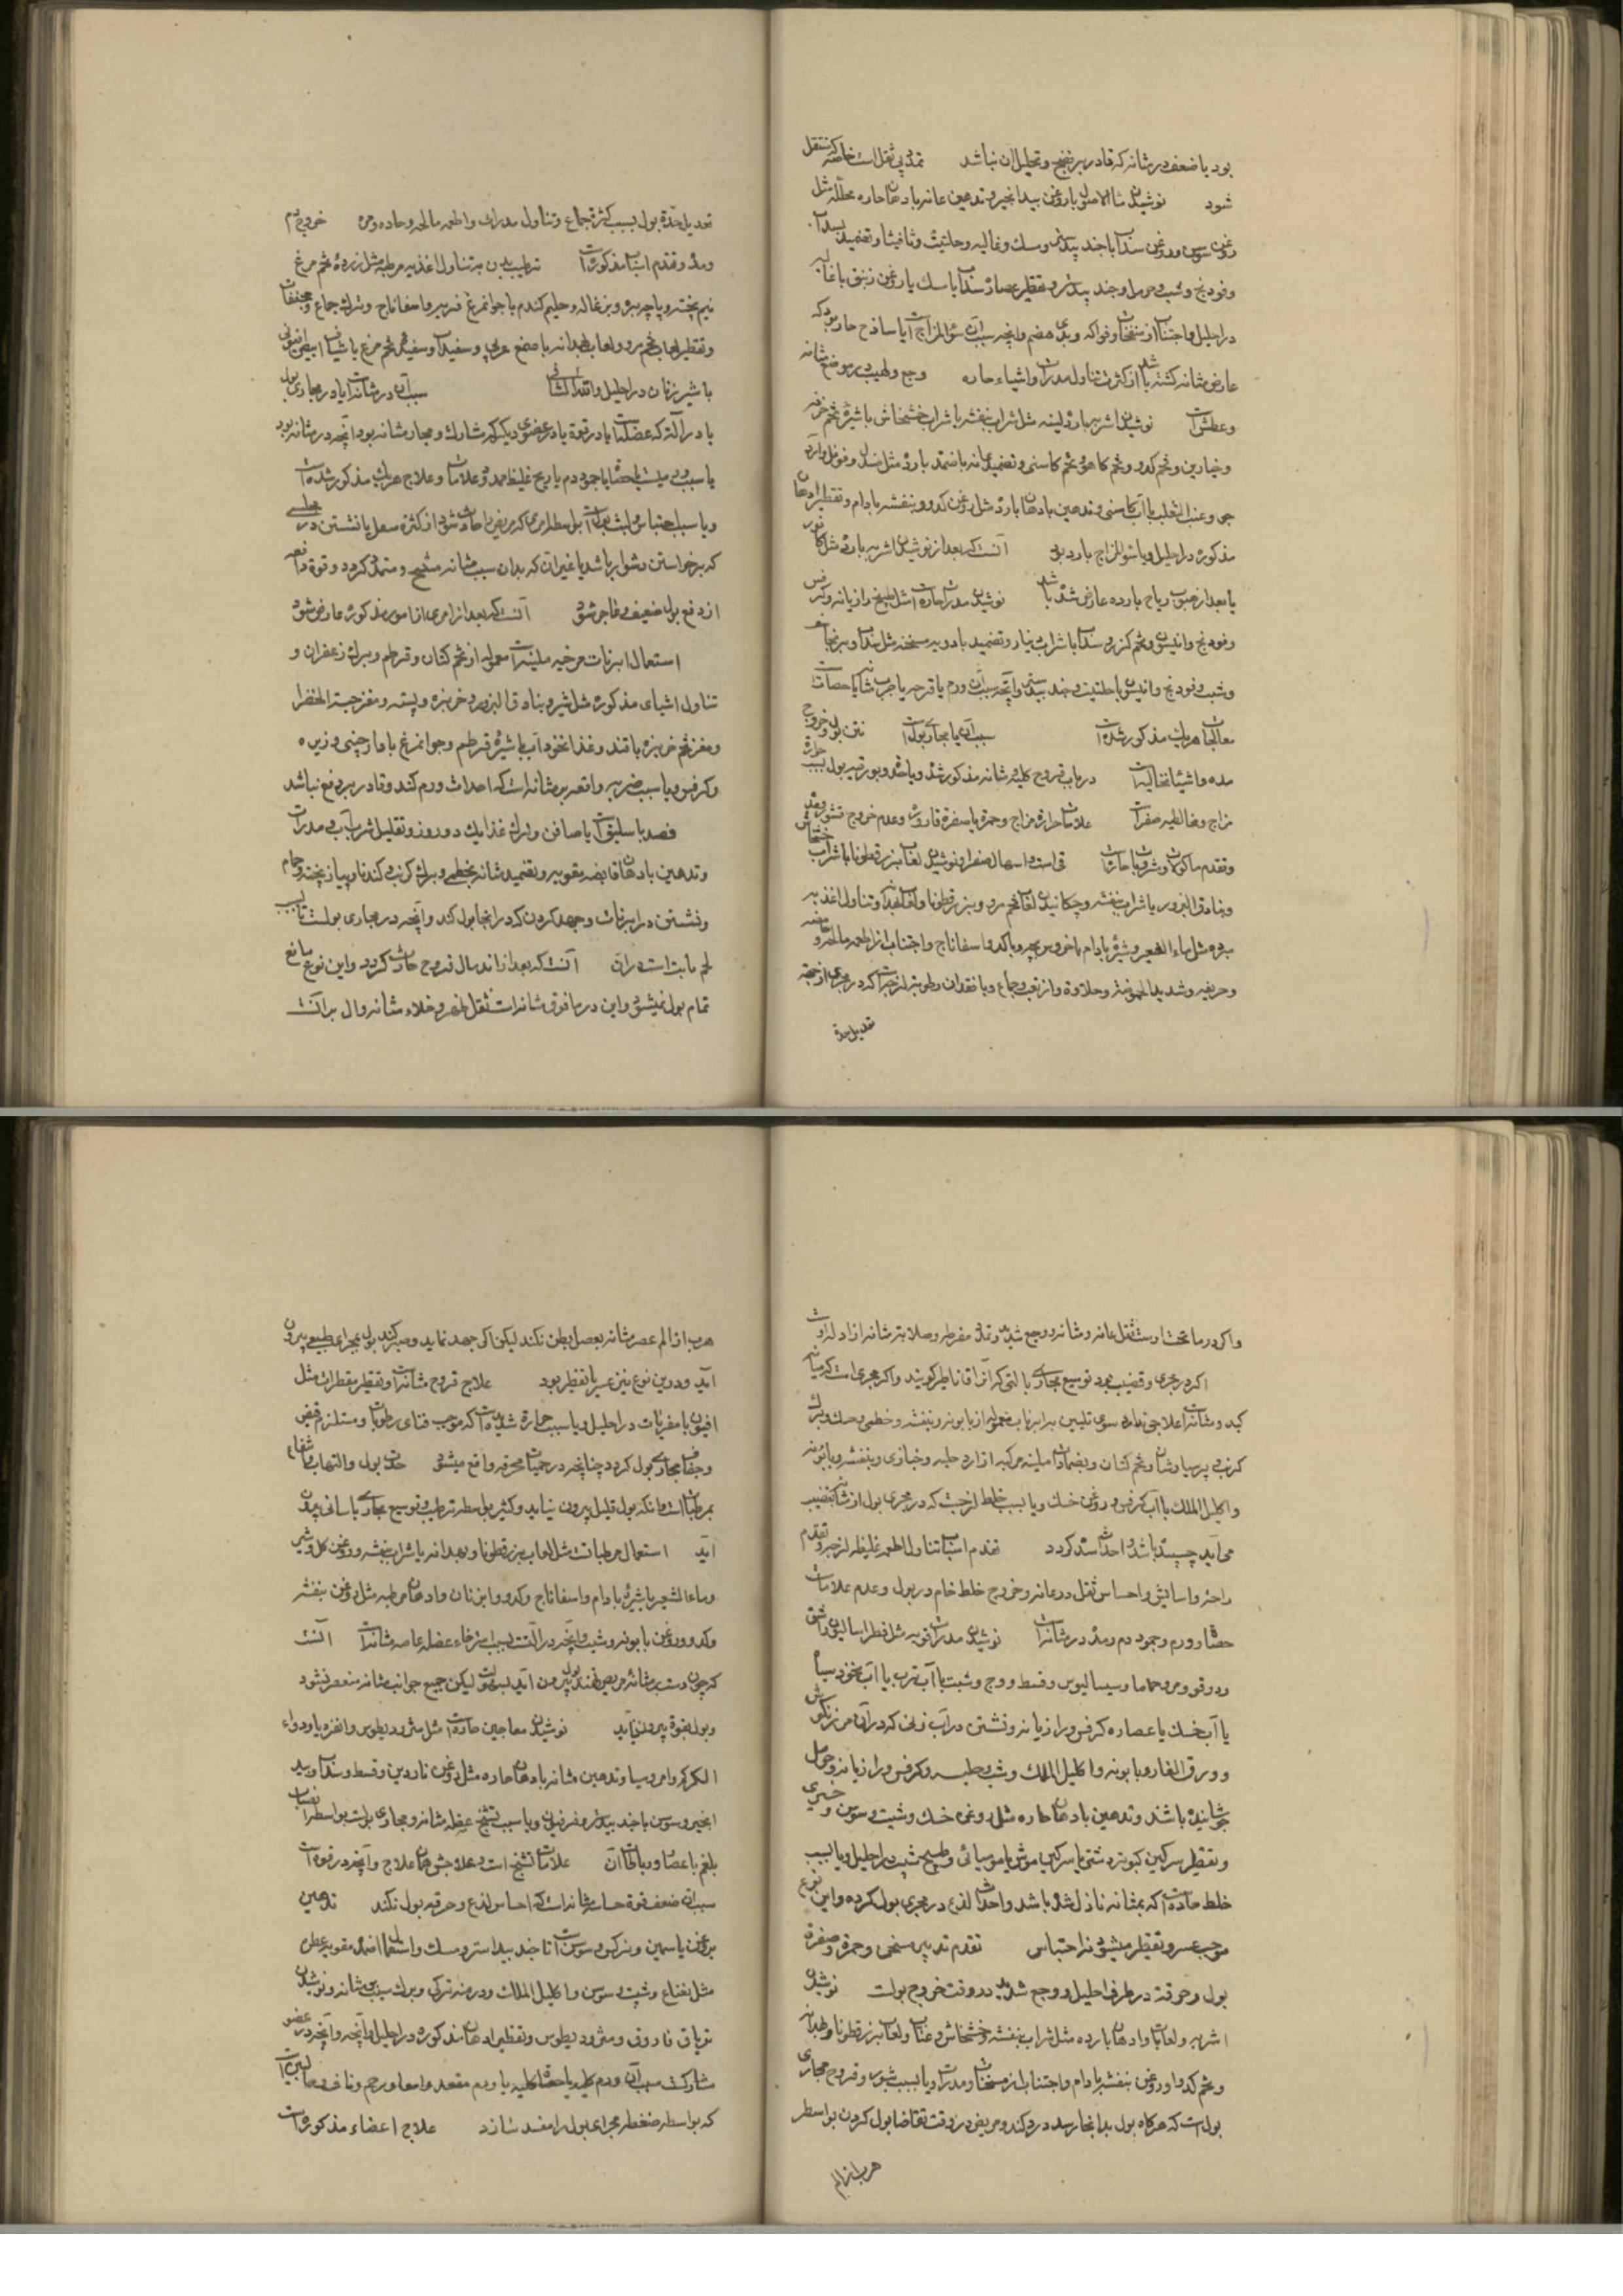 بود یا ضعف در مثانه که قادر بر نضج و تحلیل آن نباشد تمدد بی ثقل است خاصه که منتقل
شود نوشیدن ماء الاصول با روغن بیدانجیر و تدهین عانه بادهان حاره محلله مثل
روغن سوسن و روغن سداب با جند بیدستر و مسک و غالیه و حلتیت و تضمید بسداب
و فودنج و شبت و جند بیدستر و تقطیر عصاره سداب با مسک یا روغن زنبق با غالیه
در احلیل و اجتناب از منفخات و فواکه و بدی هضم و آنچه سبب آن سوء المزاج است یا ساذج حار بود که
عارض مثانه گشته باشد از کثرت تناول مدرات و اشیاء حاره وجع و لهیب در موضع مثانه
و عطش است نوشیدن اشربه بارده لینه مثل شراب بنفشه یا شراب خشخاش با شیره تخم خرفه
و خیارین و تخم کدو و تخم کاهو و تخم کاسنی و تضمید عانه باضمده بارده مثل صندل و فوفل و آرد
جو و عنب الثعلب با آب کاسنی و تدهین بادهان بارده مثل روغن کدو و بنفشه بادام و تقطیر ادهان
مذکوره در احلیل و یا سوء المزاج بارد بود آنست که بعد از نوشیدن اشربه بارده مثل کافور
یا بعد از هبوب ریاح بارده عارض شده باشد نوشیدن مدرات حاره است مثل طبیخ رازیانه و کرفس
و فودنج و انیسون و تخم گزر و سداب با شراب و تضمید بادویه مسخنه مثل سداب و برنجاسف
و شبت و فودنج و انیسون با حلتیت و جند بیدستر و آنچه سبب آن ورم یا قرحه یا جرب مثانه یا حصات
معالجات هر یک مذکور شده است سبب آن یا مجاری بول است نتن بول و خروج
مده و اشیاء نخالیه است در باب قروح کلیه و مثانه مذکور شد و یا حدة و بورقیه بول بسبب حرارة
مزاج و مخالطه صفراست علامات حرارة مزاج و حمرة یا صفرة قاروره و عدم خروج قشور و مده
و تقدم ماکولات و مشروبات حاره است قی است و اسهال صفرا و نوشیدن لعاب بزر قطونا با شراب خشخاش
و بنادق البزور با شراب بنفشه و چکانیدن لعاب تخم مرو و بزر قطونا و لعاب بهدانه و تناول اغذیه
مبرده مثل ماء الشعیر و شیره بادام یا خروس بچه با کدو و اسفاناج و اجتناب از اطعمه مالحه و حامضه
و حریفه و شدید الحموضة و حلاوة و از تعب و جماع و یا فقدان رطوبة لزجه است که در مجری از جهة
تعدیل حدة
تعدیل حدة بول بسبب کثرة جماع و تناول مدرات و اطعمه مالحه و حاده و مره خروج دم
و مده و تقدم اسباب مذکوره است ترطیب بدن بتناول اغذیه مرطبه مثل زرده تخم مرغ
نیم پخته و پاچه بره و بزغاله و حلیم گندم با جوانمرغ فربه و اسفاناج و ترک جماع و مجففات
و تقطیر لعاب تخم مرو و لعاب بهدانه با صمغ عربی و سفیداب و سفیده تخم مرغ یا شیاف ابیض افیونی
با شیر زنان در احلیل سبب آن در مثانه است یا در مجاری بول
یا در آلة که عضله است یا در قوة یا در عضوی دیگر که مشارک و مجاور مثانه بود آنچه در مثانه بود
یا سبب ورمیست یا حصاة یا جمود دم یا ریح غلیظ ممدد و علامات و علاج هر یک مذکور شده است
و یا سبب احتباس و لبث بول است بواسطه امری که مریض را حادث شود از کثرة شغل یا نشستن در مجلسی
که برخواستن دشوار باشد یا غیر آن که بدان سبب مثانه متشنج و متمدد گردد و قوة دافعه
از دفع بول ضعیف و عاجز شود آنست که بعد از امری از امور مذکوره عارض شود
استعمال ابزنات مرخیه ملینه است معمول از تخم کتان و قرطم و برک زعفران و
تناول اشیای مذکوره مثل شیره بنادق البزور و خربزه و پسته و مغز حبة الخضرا
و مغز تخم خربزه با قند و غذا نخوداب با شیره قرطم و جوانمرغ با دارچینی و زیره
و کرفس و یا سبب ضربه واقعه بر مثانه است که احداث ورم کند و قادر بر دفع نباشد
فصد باسلیق است یا صافن و ترک غذا یک دو روز و تقلیل شراب آب و مدرات
و تدهین بادهان قابضه مقویه و تضمید مثانه بخطمی و برک کرنب و کندنا و پیاز پخته و حمام
و نشستن در ابزنات و جهد کردن که در آنجا بول کند و آنچه در مجاری بولست یا بسبب
لحم نابت است در آن آنست که بعد از اندمال قروح حادث گردد و این نوع مانع
تمام بول نمیشود و این در مافوق مثانه است ثقل ظهر و خلاء مثانه دال بر آنست
و اگر در ما تحت اوست ثقل عانه و مثانه و وجع شدید و تمدد مفرطه و صلابة مثانه از ادله اوست
اگر در مجری و قضیب بود توسیع مجاری بآلتی که آنرا قاثاطیر گویند و اگر مجری است که میانه
کبد و مثانه است علاجی ندارد سوی تلیین بابزنات معموله از بابونه و بنفشه و خطمی و خسک و برک
کرنب و پرسیاوشان و تخم کتان و بضمادات ملینه مرکبه از آرد حلبه و خبازی و بنفشه و بابونه
و اکلیل الملک با آب کرفس و روغن خسک و یا بسبب خلط لزجست که در مجری بول از مثانه بقضیب
می‌آید چسبیده باشد و احداث سده گردد تقدم اسباب تناول اطعمه غلیظه لزجه و تقدم
راحة و آسایش و احساس ثقل در عانه و خروج خلط خام در بول و عدم علامات
حصاة و ورم و جمود دم و مده در مثانه است نوشیدن مدرات قویه مثل فطراسالیون و اشق
و دوقو و مر و حماما و سیسالیوس و قسط و وج و شبت با آب ترب یا آب نخود سیاه
یا آب خسک یا عصاره کرفس و رازیانه و نشستن در آب زنی که در آن مرزنگوش
و ورق الغار و بابونه و اکلیل الملک و شبت و حلبه و کرفس و رازیانه
جوشانیده باشند و تدهین بادهان حاره مثل روغن خسک و شبت و سوسن و خیری
و تقطیر سرگین کبوتر دشتی یا سرگین موش با مومیائی و طبیخ شبت در احلیل و یا بسبب
خلط حاده است که بمثانه نازل شده باشد و احداث لذع در مجری بول کرده و این نوع
موجب عسر و تقطیر میشود نه احتباس تقدم تدبیر مسخن و حمرة و صفرة
بول و حرقة در طرف احلیل و وجع شدید در وقت خروج بولست نوشیدن
اشربه و لعابات و ادهان بارده مثل شراب بنفشه و خشخاش و عناب و لعاب بزر قطونا و بهدانه
و تخم کدو و روغن بنفشه بادام و اجتناب از مسخنات و مدرات و یا بسبب بثور و قروح مجاری
بول است که هر گاه بول بدانجا رسد درد کند و مریض در وقت تقاضا بول کردن بواسطه
هرب از الم
هرب از الم عصر مثانه بعضل بطن نکند لیکن اگر جهد نماید و صبر کند بول بمجرای طبیعی بیرون
آید و درین نوع نیز عسر با تقطیر بود علاج قروح مثانه است و تقطیر مقطرات مثل
افیون با مغریات در احلیل و یا بسبب حرارة شدیده است که موجب فنای رطوبات و مستلزم قبض
و جفاف مجاری بول گردد چنانچه در حمیات محرقه واقع میشود حدت بول و التهاب
بمرطبات است و آنکه بول قلیل بیرون نیاید و کثیر بواسطه ترطیب و توسیع مجاری بآسانی بیرون
آید استعمال مرطبات مثل لعاب بزر قطونا و بهدانه با شراب بنفشه و روغن گل و شیر
و ماء الشعیر با شیره بادام و اسفاناج و کدو و ابزنان و ادهان مرطبه مثل روغن بنفشه
و کدو و روغن بابونه و شبت و آنچه در آلتست بسبب استرخاء عضله عاصره مثانه است آنست
که چون دست بر مثانه مریض نهند بول بیرون آید بسهولت لیکن جمیع جوانب مثانه منعصر نشود
و بول بقوة بیرون نیاید نوشیدن معاجین حاره است مثل مثرودیطوس و انقردیا و دواء
الکرکم و امروسیا و تدهین مثانه بادهان حاره مثل روغن ناردین و قسط و سداب و بید
انجیر و سوسن با جند بیدستر و فرفیون و یا سبب تشنج عضله مثانه و مجاری بولست بواسطه انصباب
بلغم باعصاب و رباطات آن علامات تشنج است و علاجش همان علاج و آنچه در قوه است
سبب آن ضعف قوة حساسه مثانه است که احساس لذع و حرقه بول نکند تدهین
بروغن یاسمین و نرگس و سوسن است با جند بیدستر و مسک و استعمال اضمده مقویه عطره
مثل نعناع و شبت و سوسن و اکلیل الملک و درمنه ترکی و برک سیب بر مثانه و نوشیدن
تریاق فاروق و مثرودیطوس و تقطیر ادهان مذکوره در احلیل و آنچه در عضو
مشارکست سبب آن ورم کلیه یا حصاة کلیه یا ورم مقعد و امعا و رحم و ناف و حالبین است
که بواسطه ضغطه مجرای بول را مفسد سازد علاج اعضاء مذکوره است